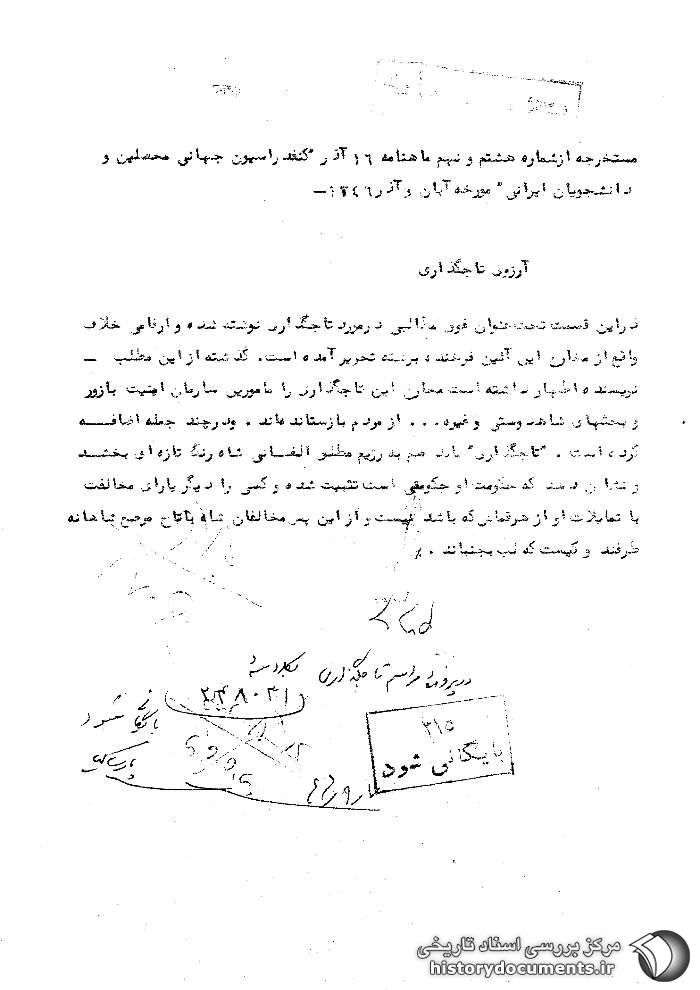 مستخرجه ازشماره هشتم و نهم ماهنامه ١٦ آذر "کنفدراسیون جهانی محصلین و
دانشجویان ایرانی" مورخه آبان و آذر ١٣٤٦-
آرزوی تاجگذاری
دراین قسمت تحت عنوان فوق مطالبی درمورد تاجگذاری نوشته شده و ارقامی خلاف
واقع از مخارج این آئین فرخنده برشته تحریر آمده است. گذشته از این مطلب -
نویسنده اظهار داشته است مخارج این تاجگذاری را مامورین سازمان امنیت بازور
و بخشهای شاهدوستی و غیره... از مردم بازستانده‌اند . ودرچند جمله اضافه
کرده است . "تاجگذاری" باید هم به رژیم مطلق العنانی شاه رنگ تازه ای بخشد
و نشان دهد که حکومت او حکومتی است تثبیت شده و کسی را دیگر یارای مخالفت
با تمایلات او از هرقماش که باشد نیست و از این پس مخالفان شاه باتاج مرصع شاهانه
طرفند و کیست که لب بجنباند . ٪
مراسم تاجگذاری
بایگانی شود
٣١٥
بایگانی شود
مرکز بررسی اسناد تاریخی
historydocuments.ir